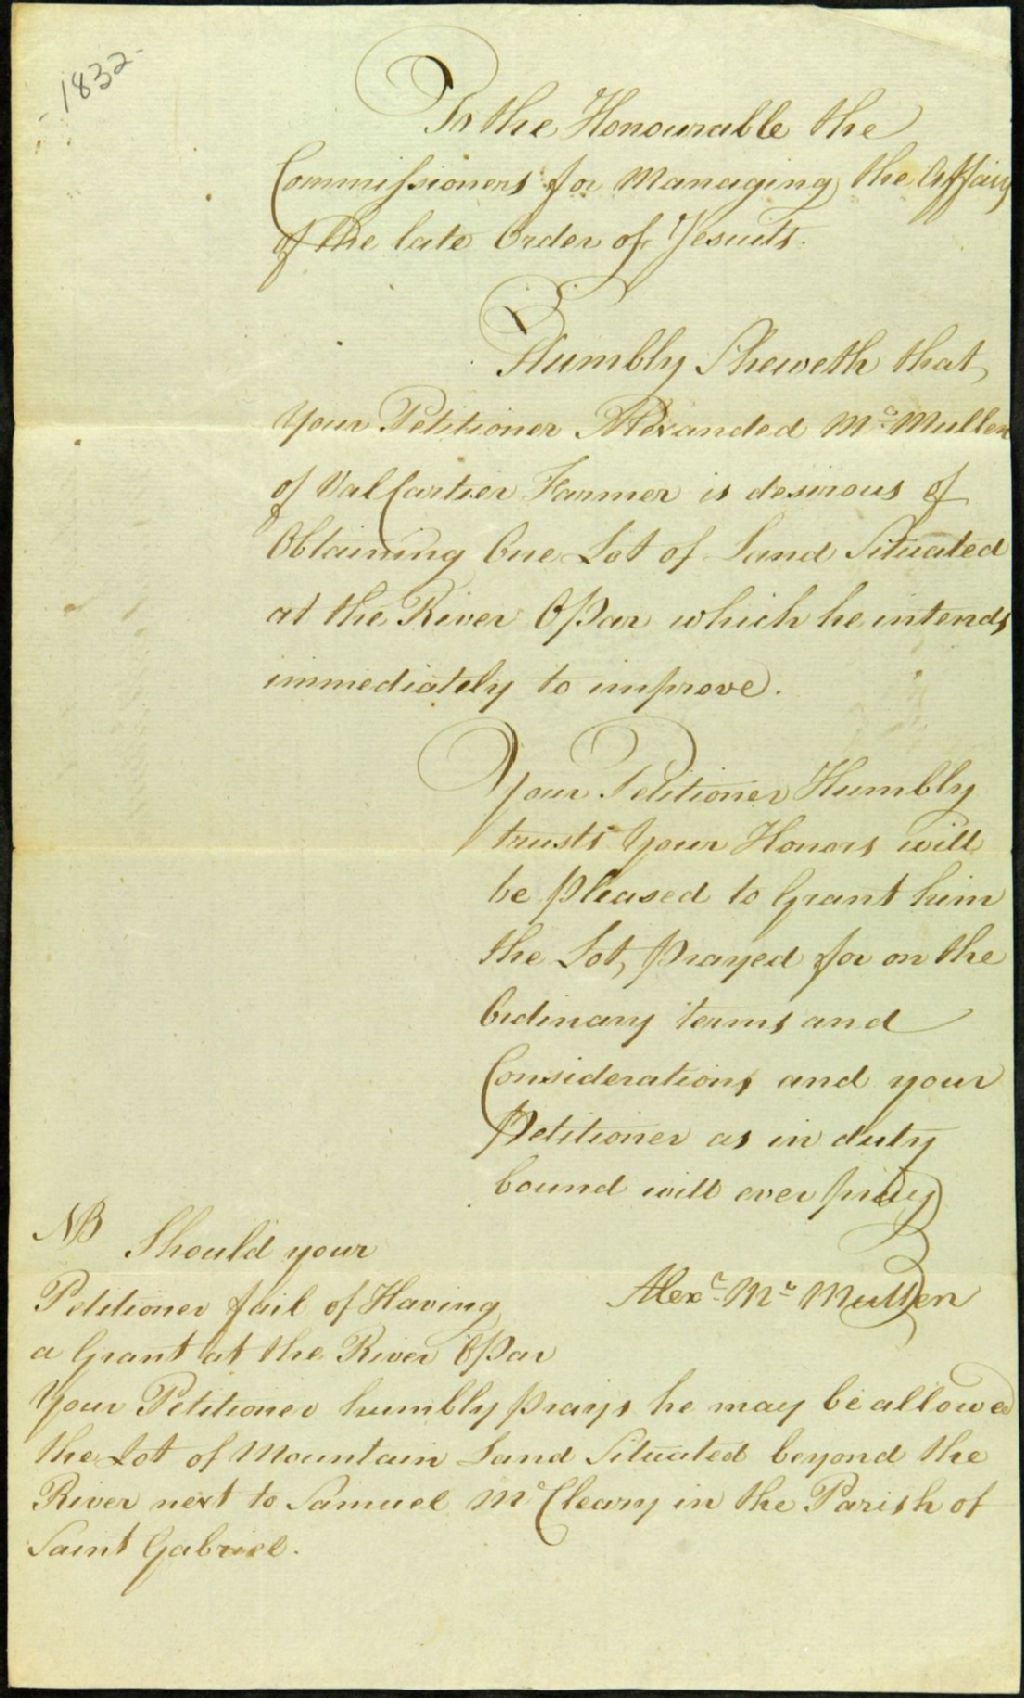 1832
To the Honourable the
Commissioners for Managing the Affairs
of the late Order of Jesuits.
Humbly Sheweth that,
Your Petitioner Alexanded Mc Mullen
of ValCartier Farmer is desirous of
Obtaining One Lot of Land Situated
at the River OPar which he intends
immediately to improve.
Your Petitioner Humbly
trusts Your Honors will
be pleased to Grant him
the Lot, prayed for on the
Ordinary terms and
Considerations and your
Petitioner as in duty
bound will ever pray
NB Should your
Alexr. Mc Mullen
Petitioner fail of Having
a Grant at the River OPar
Your Petitioner humbly prays he may be allowed
the Lot of Mountain Land Situated beyond the
River next to Samuel McCleary in the Parish of
Saint Gabriel.